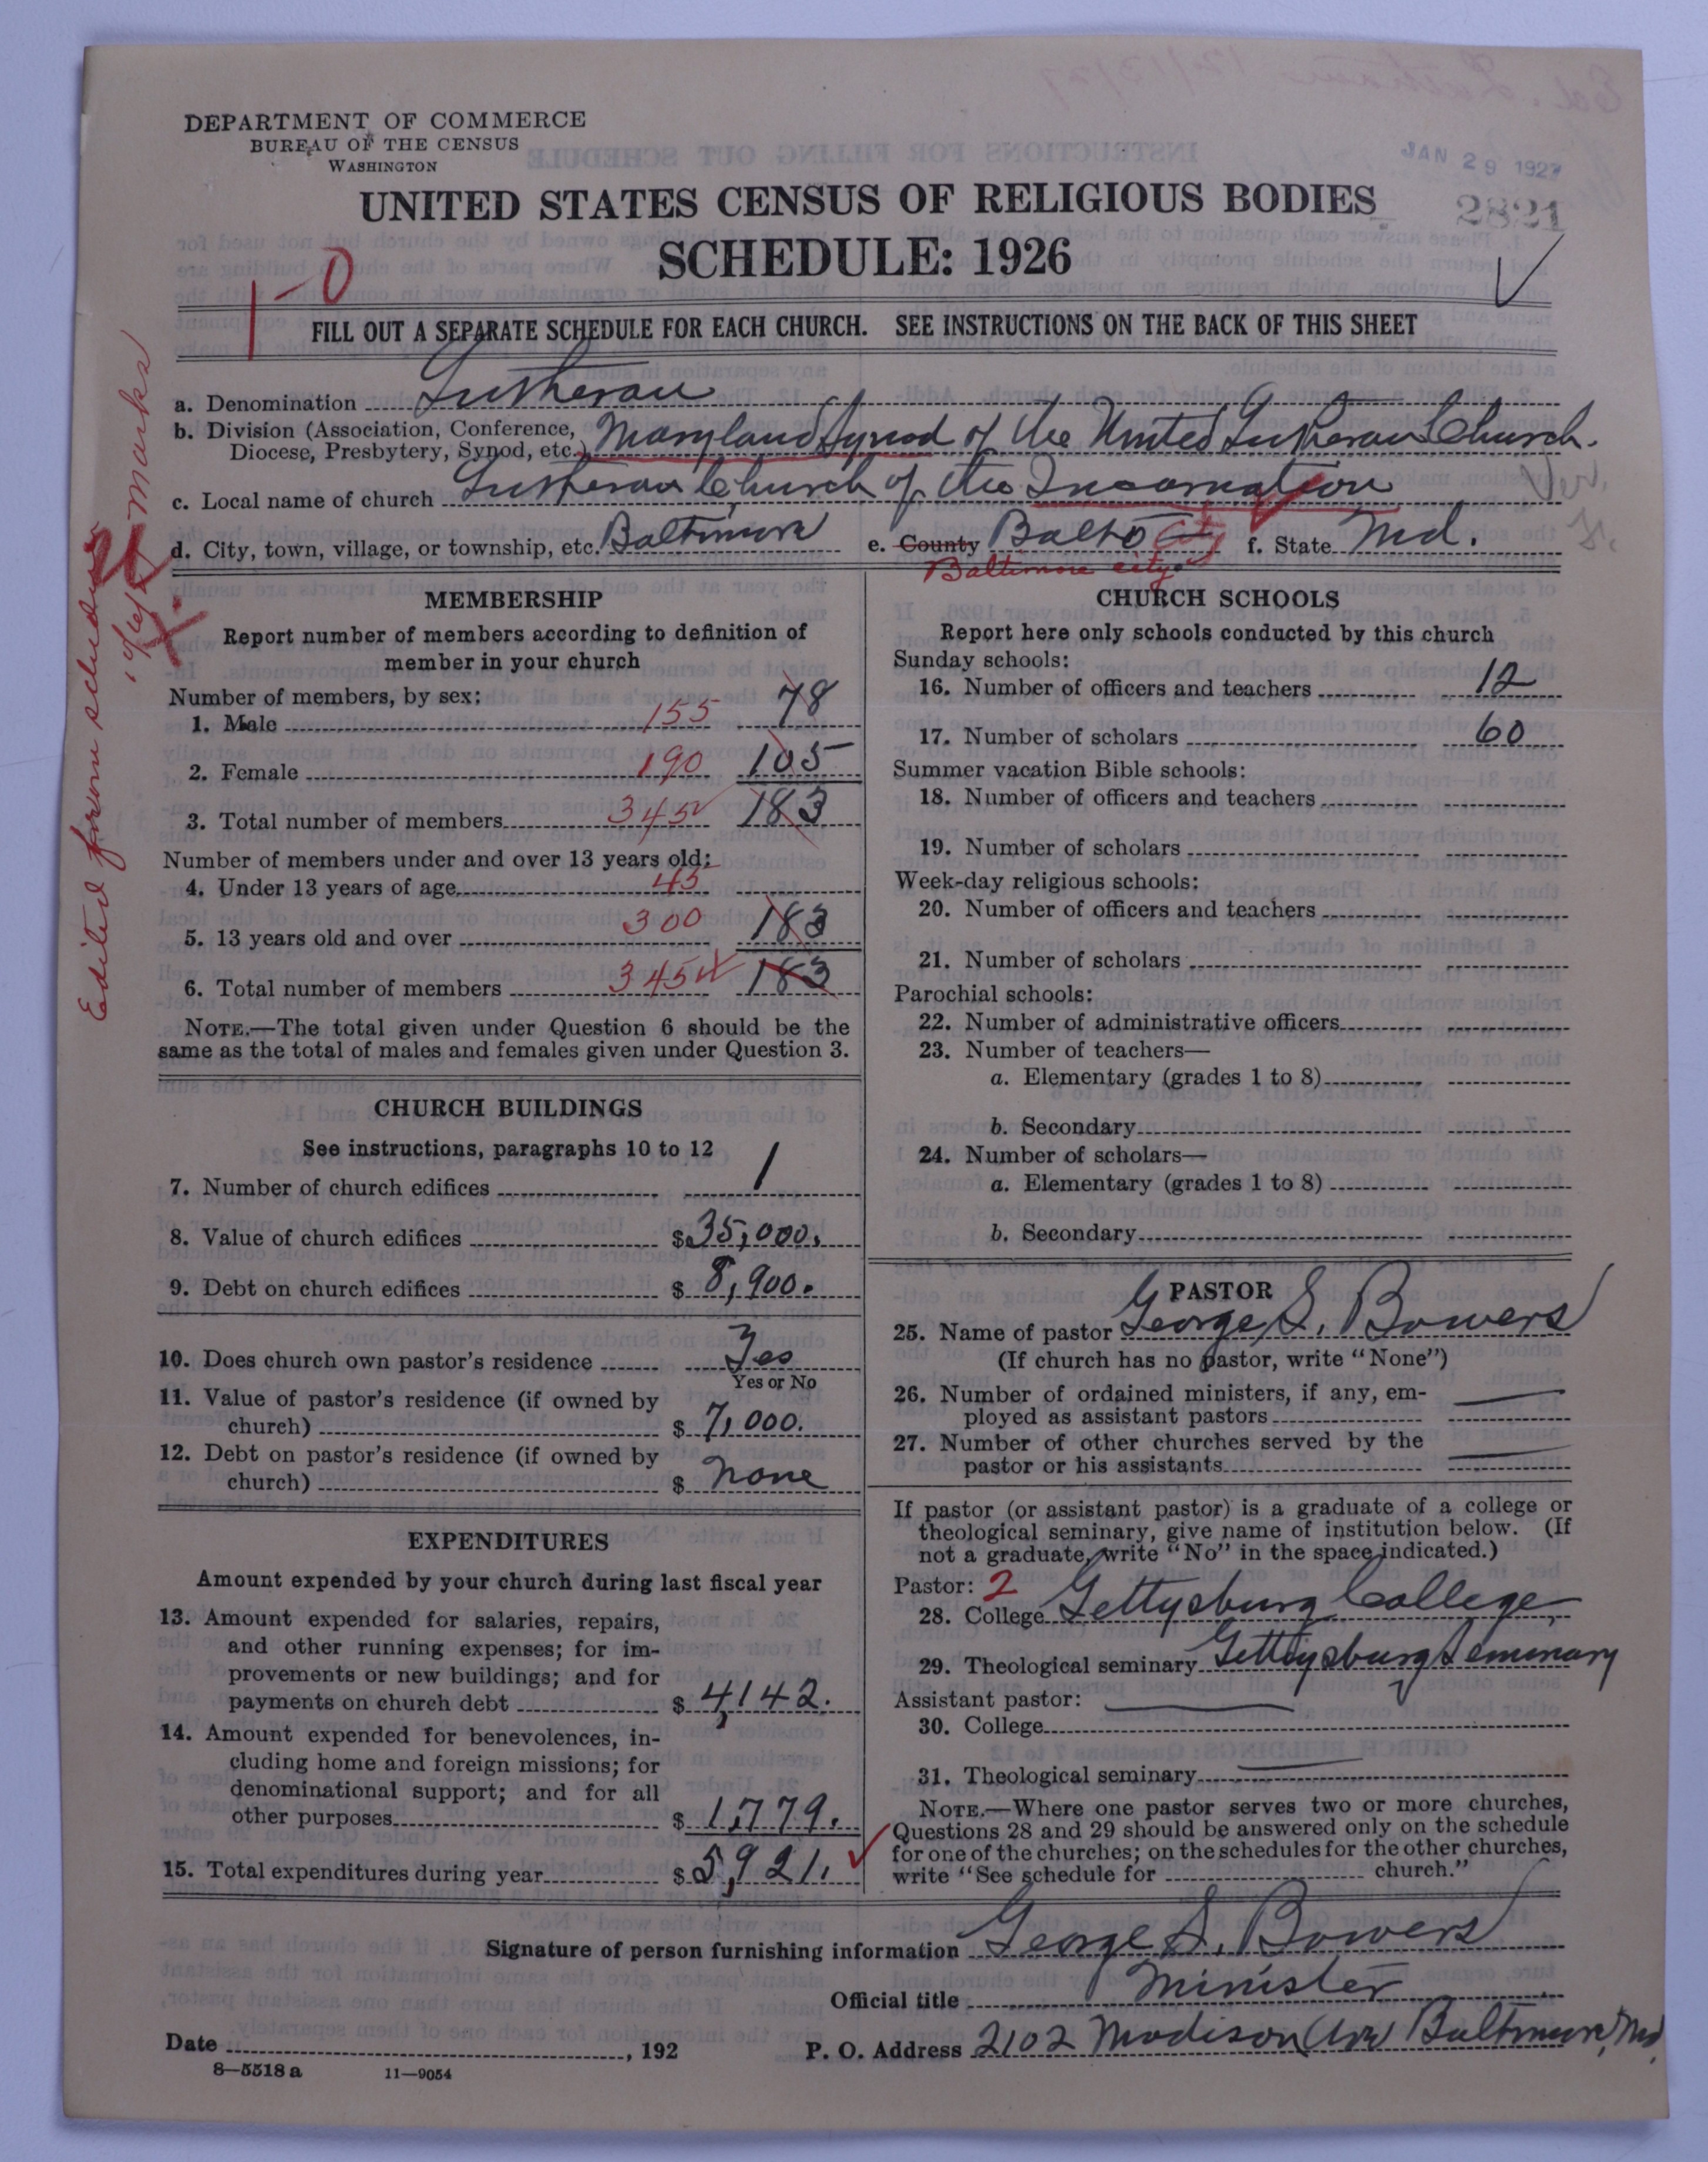 DEPARTMENT OF COMMERCE
BUREAU OF THE CENSUS
WASHINGTON
JAN 29 1927
2821
UNITED STATES CENSUS OF RELIGIOUS BODIES
SCHEDULE: 1926
1-0
FILL OUT A SEPARATE SCHEDULE FOR EACH CHURCH. SEE INSTRUCTIONS ON THE BACK OF THIS SHEET
a. Denomination Lutheran
b. Division (Association, Conference, Diocese, Presbytery, Synod, etc.) Maryland Synod of the United Lutheran Church.
c. Local name of church Lutheran Church of the Incarnation
d. City, town, village, or township, etc. Baltimore e. County Balto City f. State Md.
Baltimore city
Edited from schedule
marks
MEMBERSHIP
Report number of members according to definition of
member in your church
Number of members, by sex:
1. Male 155 78
2. Female 190 105
3. Total number of members 345 183
Number of members under and over 13 years old:
4. Under 13 years of age 45
5. 13 years old and over 300 183
6. Total number of members 345 183
NOTE.—The total given under Question 6 should be the
same as the total of males and females given under Question 3.
CHURCH BUILDINGS
See instructions, paragraphs 10 to 12
7. Number of church edifices 1
8. Value of church edifices $35,000.
9. Debt on church edifices $ 8,900.
10. Does church own pastor's residence Yes
Yes or No
11. Value of pastor's residence (if owned by
church) $ 7,000.
12. Debt on pastor's residence (if owned by
church) $ none
EXPENDITURES
Amount expended by your church during last fiscal year
13. Amount expended for salaries, repairs,
and other running expenses; for im-
provements or new buildings; and for
payments on church debt $ 4,142.
14. Amount expended for benevolences, in-
cluding home and foreign missions; for
denominational support; and for all
other purposes $ 1,779.
15. Total expenditures during year $5,921.
CHURCH SCHOOLS
Report here only schools conducted by this church
Sunday schools:
16. Number of officers and teachers 12
17. Number of scholars 60
Summer vacation Bible schools:
18. Number of officers and teachers
19. Number of scholars
Week-day religious schools:
20. Number of officers and teachers
21. Number of scholars
Parochial schools:
22. Number of administrative officers
23. Number of teachers—
a. Elementary (grades 1 to 8)
b. Secondary
24. Number of scholars—
a. Elementary (grades 1 to 8)
b. Secondary
PASTOR
25. Name of pastor George S. Bowers
(If church has no pastor, write "None")
26. Number of ordained ministers, if any, em-
ployed as assistant pastors —
27. Number of other churches served by the
pastor or his assistants —
If pastor (or assistant pastor) is a graduate of a college or
theological seminary, give name of institution below. (If
not a graduate, write "No" in the space indicated.)
Pastor: 2
28. College Gettysburg College
29. Theological seminary Gettysburg Seminary
Assistant pastor: —
30. College
31. Theological seminary —
NOTE.—Where one pastor serves two or more churches,
Questions 28 and 29 should be answered only on the schedule
for one of the churches; on the schedules for the other churches,
write "See schedule for church."
Signature of person furnishing information George S. Bowers
Official title Minister
Date , 192 P. O. Address 2102 Madison Ave Baltimore, Md.
8—5518 a 11—9054